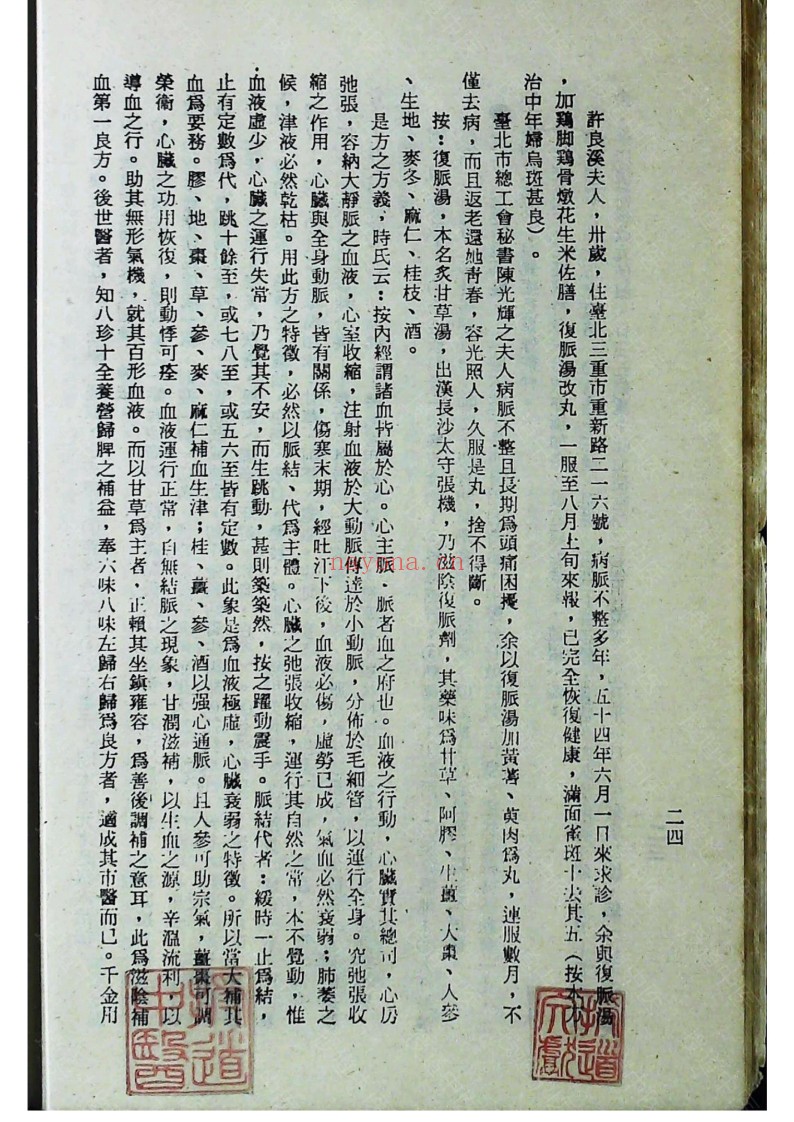 二四
許良溪夫人，卅歲，住臺北三重市重新路二一六號，病脈不整多年，五十四年六月一日來求診，余與復脈湯
，加鷄脚鷄骨燉花生米佐膳，復脈湯改丸，一服至八月上旬來報，已完全恢復健康，滿面雀斑十去其五（按本方
治中年婦烏斑甚良）。
臺北市總工會秘書陳光輝之夫人病脈不整且長期爲頭痛困擾，余以復脈湯加黃蓍、萸肉爲丸，連服數月，不
僅去病，而且返老還她靑春，容光照人，久服是丸，捨不得斷。
按：復脈湯，本名炙甘草湯，出漢長沙太守張機，乃滋陰復脈劑，其藥味爲甘草、阿膠、生薑、大棗、人參
、生地、麥冬、麻仁、桂枝、酒。
是方之方義，時氏云：按內經謂諸血皆屬於心。心主脈．脈者血之府也。血液之行動，心臟實其總司，心房
弛張，容納大靜脈之血液，心室收縮，注射血液於大動脈傳達於小動脈，分佈於毛細管，以運行全身。究弛張收
縮之作用，心臟與全身動脈，皆有關係，傷寒末期，經吐汗下後，血液必傷，虛勞已成，氣血必然衰弱；肺萎之
候，津液必然乾枯。用此方之特徵，必然以脈結、代爲主體。心臟之弛張收縮，運行其自然之常，本不覺動，惟
血液虛少，心臟之運行失常，乃覺其不安，而生跳動，甚則築築然，按之躍動震手。脈結代者：緩時一止爲結，
止有定數爲代，跳十餘至，或七八至，或五六至皆有定數。此象是爲血液極虛，心臟衰弱之特徵。所以當大補其
血爲要務。膠、地、棗、草、參、麥、麻仁補血生津；桂、薑、參、酒以强心通脈。且人參可助宗氣，薑棗可調
榮衛，心臟之功用恢復，則動悸可痊。血液運行正常，自無結脈之現象，甘潤滋補，以生血之源，辛溫流利，以
導血之行。助其無形氣機，就其百形血液。而以甘草爲主者，正賴其坐鎭雍容，爲善後調補之意耳，此爲滋陰補
血第一良方。後世醫者，知八珍十全養營歸脾之補益，奉六味八味左歸右歸爲良方者，適成其市醫而已。千金用
nayona.cn
道
中醫